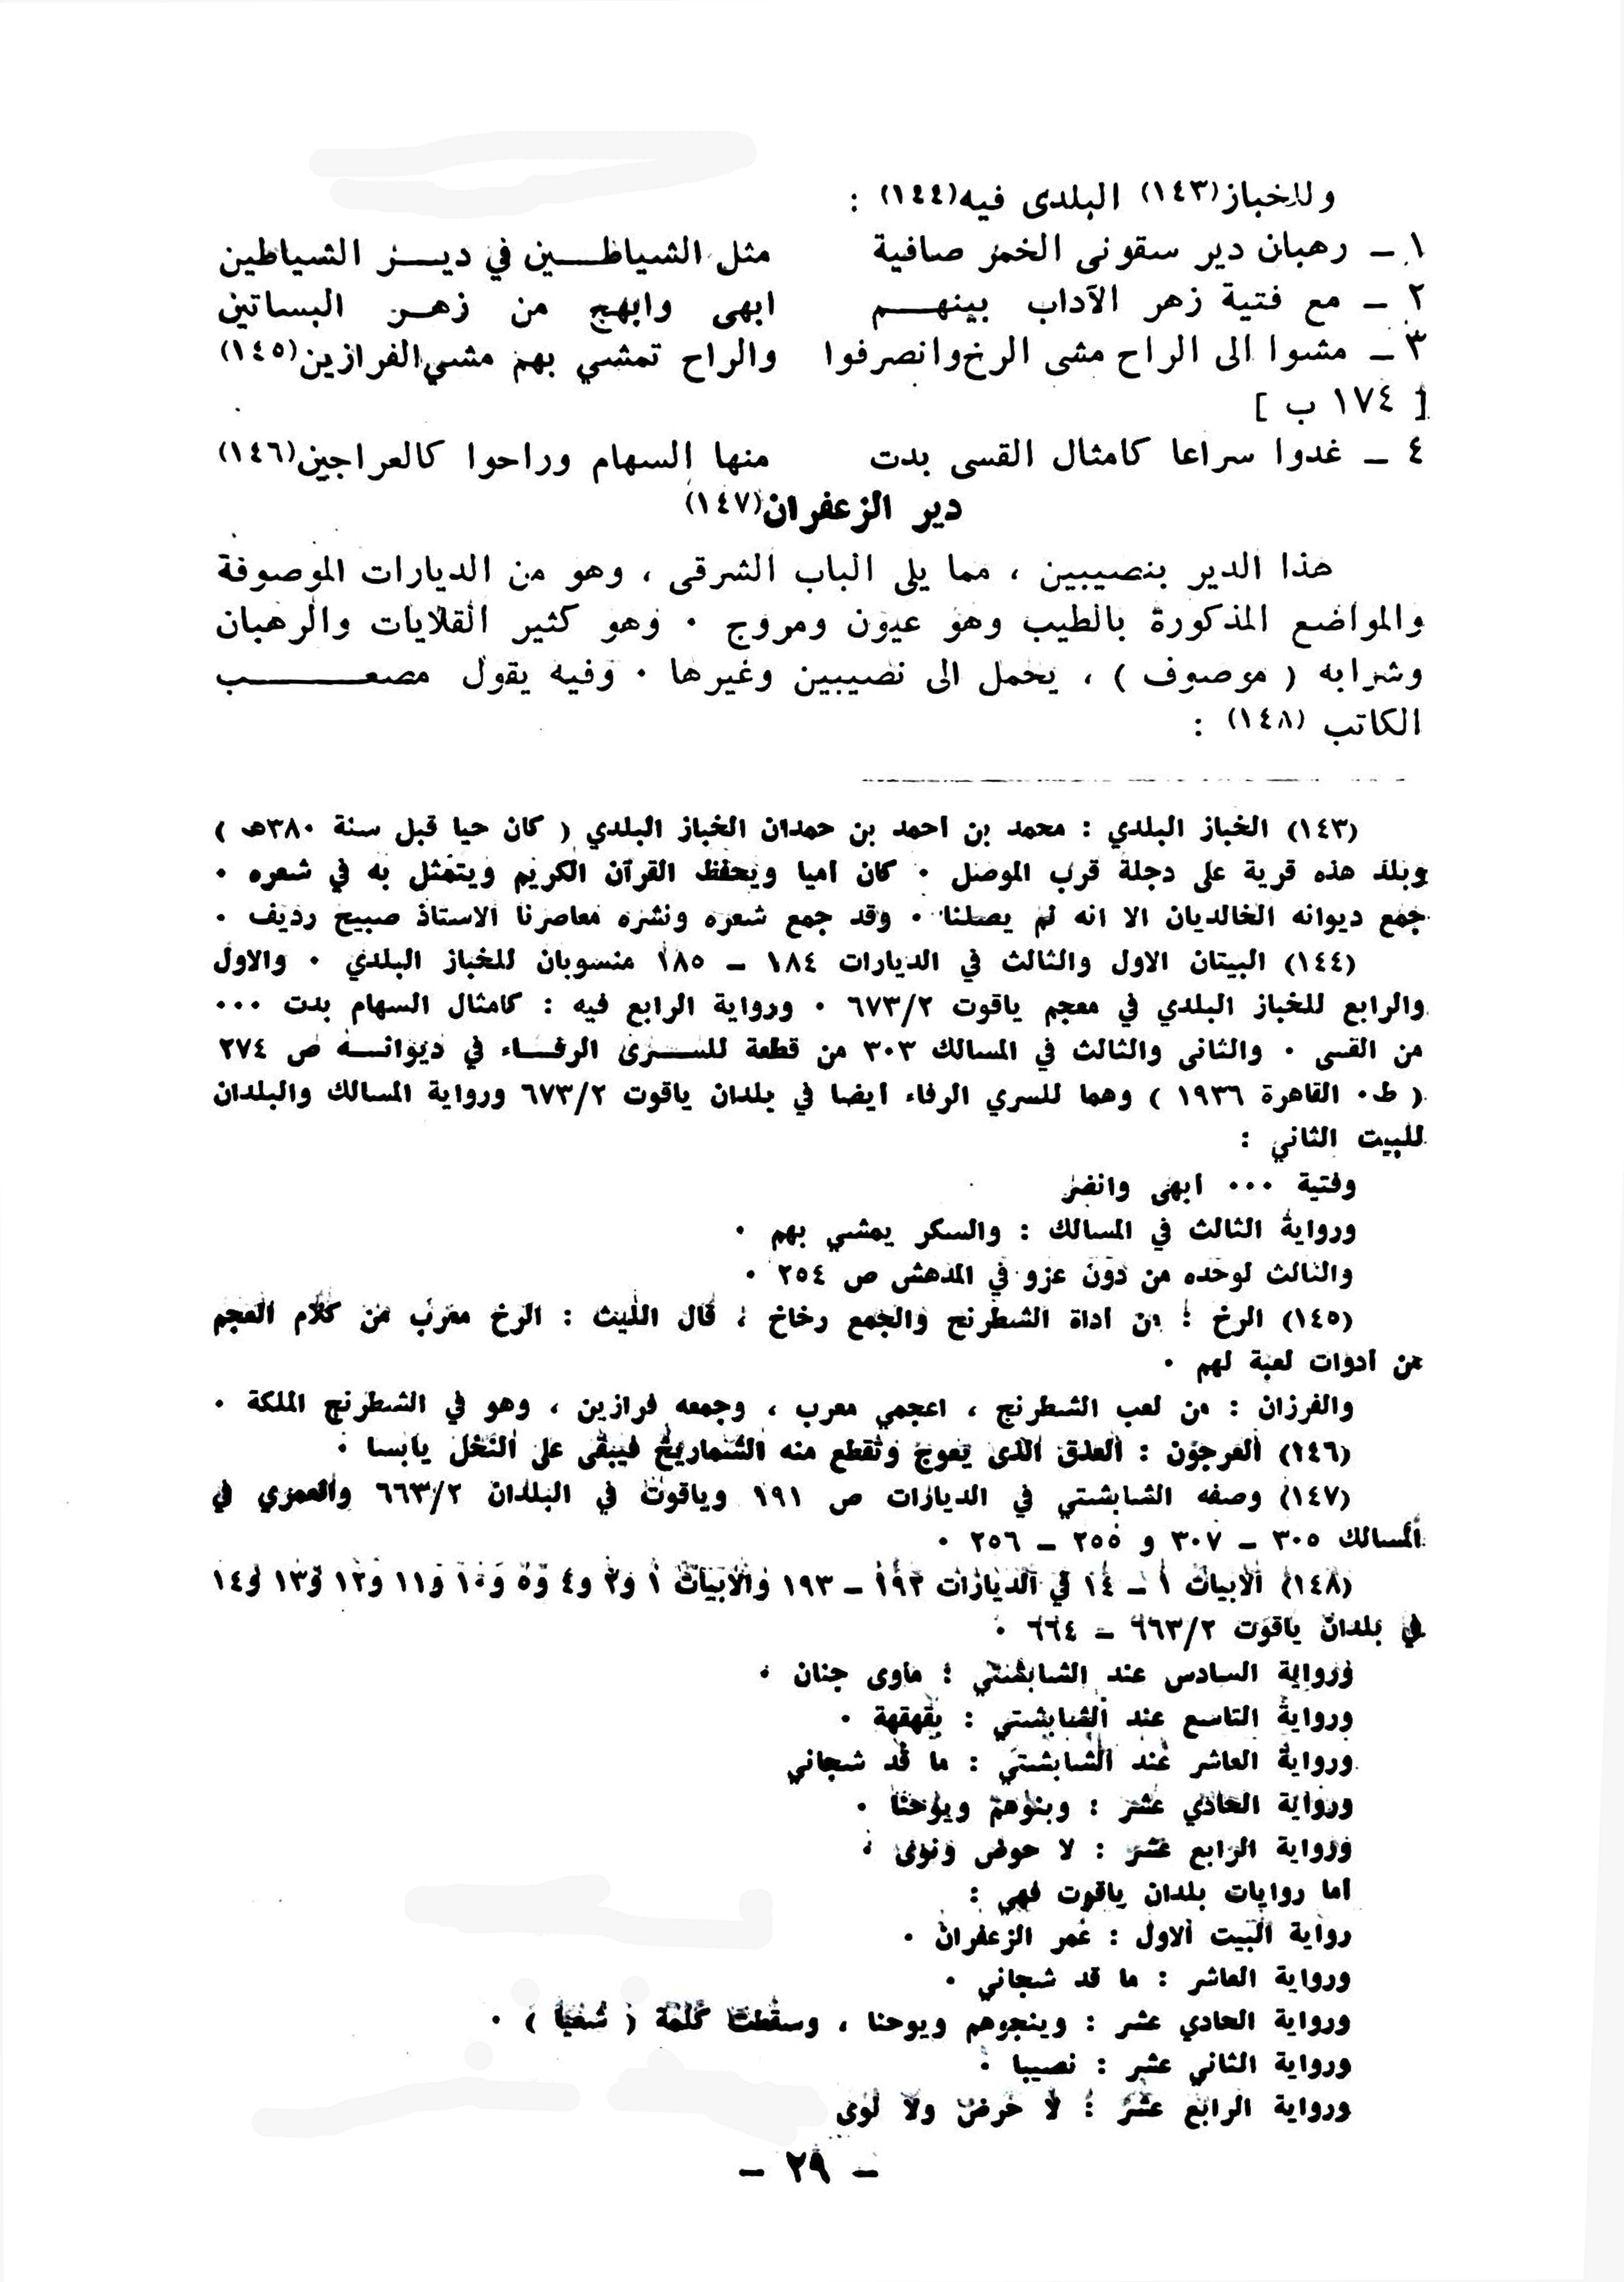 وللخباز(١٤٣) البلدى فيه(١٤٤) :
١ - رهبان دير سقونى الخمر صافية مثل الشياطـــين في ديـــر الشياطين
٢ - مع فتية زهر الآداب بينهـــم ابهى وابهج من زهـر البساتين
٣ - مشوا الى الراح مشى الرخ وانصرفوا والراح تمشي بهم مشي الفرازين(١٤٥)
[ ١٧٤ ب ]
٤ - غدوا سراعا كامثال القسى بدت منها السهام وراحوا كالعراجين(١٤٦)
دير الزعفران(١٤٧)
هذا الدير بنصيبين ، مما يلى الباب الشرقى ، وهو من الديارات الموصوفة
والمواضع المذكورة بالطيب وهو عيون ومروج ٠ وهو كثير القلايات والرهبان
وشرابه ( موصوف ) ، يحمل الى نصيبين وغيرها ٠ وفيه يقول مصعـــــب
الكاتب (١٤٨) :
(١٤٣) الخباز البلدي : محمد بن احمد بن حمدان الخباز البلدي ( كان حيا قبل سنة ٣٨٠هـ )
وبلد هذه قرية على دجلة قرب الموصل ٠ كان اميا ويحفظ القرآن الكريم ويتمثل به في شعره ٠
جمع ديوانه الخالديان الا انه لم يصلنا ٠ وقد جمع شعره ونشره معاصرنا الاستاذ صبيح رديف ٠
(١٤٤) البيتان الاول والثالث في الديارات ١٨٤ - ١٨٥ منسوبان للخباز البلدي ٠ والاول
والرابع للخباز البلدي في معجم ياقوت ٦٧٣/٢ ٠ ورواية الرابع فيه : كامثال السهام بدت ٠٠٠
من القسى ٠ والثانى والثالث في المسالك ٣٠٣ من قطعة للســرى الرفـــاء في ديوانـــه ص ٢٧٤
( ط٠ القاهرة ١٩٣٦ ) وهما للسري الرفاء ايضا في بلدان ياقوت ٦٧٣/٢ ورواية المسالك والبلدان
للبيت الثاني :
وفتية ٠٠٠ ابهى وانضر
ورواية الثالث في المسالك : والسكر يمشي بهم ٠
والثالث لوحده من دون عزو في المدهش ص ٢٥٤ ٠
(١٤٥) الرخ : من اداة الشطرنج والجمع رخاخ ، قال الليث : الرخ معرب من كلام العجم
من ادوات لعبة لهم ٠
والفرزان : من لعب الشطرنج ، اعجمي معرب ، وجمعه فرازين ، وهو في الشطرنج الملكة ٠
(١٤٦) العرجون : العذق الذى يعوج وتقطع منه الشماريخ فيبقى على النخل يابسا ٠
(١٤٧) وصفه الشابشتي في الديارات ص ١٩١ وياقوت في البلدان ٦٦٣/٢ والعمري في
المسالك ٣٠٥ - ٣٠٧ و ٢٥٥ - ٢٥٦ ٠
(١٤٨) الابيات ١ - ١٤ في الديارات ١٩٢ - ١٩٣ والابيات ١ و٢ و٤ و٥ و١٠ و١١ و١٢ و١٣ و١٤
في بلدان ياقوت ٦٦٣/٢ - ٦٦٤ ٠
ورواية السادس عند الشابشتي : مأوى جنان ٠
ورواية التاسع عند الشابشتي : بقهقهة ٠
ورواية العاشر عند الشابشتي : ما قد شجاني
ورواية الحادي عشر : وبنوهم ويوحنا ٠
ورواية الرابع عشر : لا حوض ونوى ٠
اما روايات بلدان ياقوت فهي :
رواية البيت الاول : عمر الزعفران ٠
ورواية العاشر : ما قد شجاني ٠
ورواية الحادي عشر : وينجوهم ويوحنا ، وسقطت كلمة ( شعيا ) ٠
ورواية الثاني عشر : نصيبا ٠
ورواية الرابع عشر : لا حرض ولا لوى
- ٢٩ -